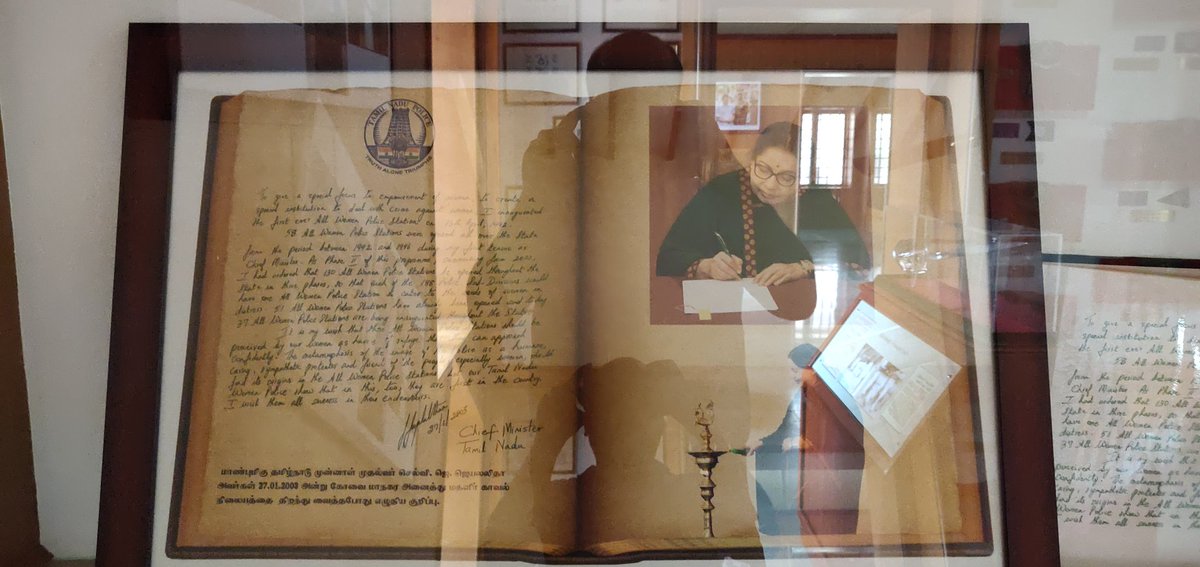 TAMIL NADU POLICE
TRUTH ALONE TRIUMPHS
To give a special focus to empowerment of women to create a
special institution to deal with crime against women I inaugurated
the first ever All Women Police Station on
58 All Women Police Stations were opened all over the State
from the period between 1992 and 1996 during my first tenure as
Chief Minister. As Phase II of this programme, commencing from 2002,
I had ordered that 130 All Women Police Stations be opened throughout the
State in three phases, so that each of the 188 Police Sub-Divisions would
have one All Women Police Station to cater to the needs of women in
distress. 51 All Women Police Stations have already been opened and today
37 All Women Police Stations are being inaugurated throughout the State.
It is my wish that these All Women Police Stations should be
perceived by our women as havens of refuge they can approach
confidently. The metamorphosis of the image of the Police as a humane,
caring, sympathetic protector and friend of the people, especially women, should
find its origins in the All Women Police Stations. our Tamil Nadu
Women Police show that in this too, they are first in the country.
I wish them all success in their endeavours.
27/1/2003
Chief Minister
Tamil Nadu
மாண்புமிகு தமிழ்நாடு முன்னாள் முதல்வர் செல்வி. ஜெ. ஜெயலலிதா
அவர்கள் 27.01.2003 அன்று கோவை மாநகர அனைத்து மகளிர் காவல்
நிலையத்தை திறந்து வைத்தபோது எழுதிய குறிப்பு.
To give a special
special institution
the first ever All
58 All Women
from the period between
Chief Minister. As Phase
I had ordered that 130 All
State in three phases, so that
have one All Women Police
distress. 51 All Women Police
37 All Women Police Stations
It is my
perceived by our women as
confidently. The metamorphosis
caring, sympathetic protector and
find its origins in the All
Women Police show that in
I wish them all success in